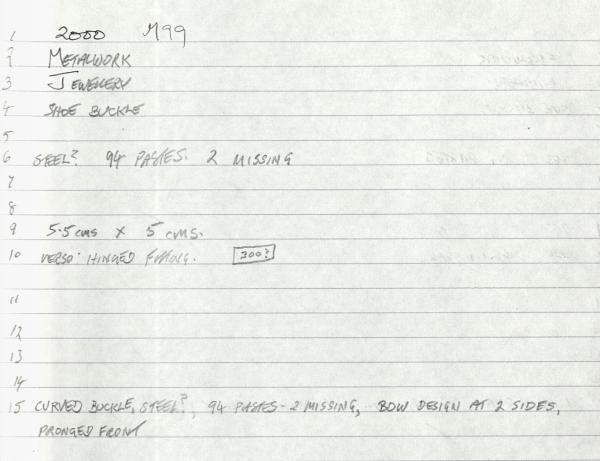 1 2000 M99
2 METALWORK
3 JEWELLERY
4 SHOE BUCKLE
5
6 STEEL? 94 PASTES. 2 MISSING
7
8
9 5.5 cms x 5 cms.
10 VERSO: HINGED FIXING. 200?
11
12
13
14
15 CURVED BUCKLE, STEEL?, 94 PASTES - 2 MISSING, BOW DESIGN AT 2 SIDES,
PRONGED FRONT